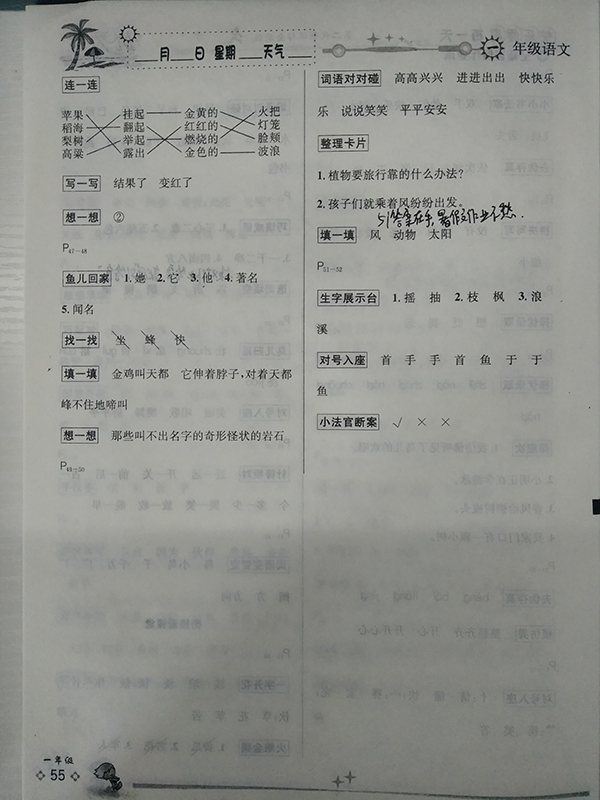 月 日 星期 天气
一 年级语文
连一连
苹果 挂起 金黄的 火把
稻海 翻起 红红的 灯笼
梨树 举起 燃烧的 脸颊
高粱 露出 金色的 波浪
写一写 结果了 变红了
想一想 ②
P47—48
鱼儿回家 1.她 2.它 3.他 4.著名
5.闻名
找一找 坐 蜂 快
填一填 金鸡叫天都 它伸着脖子,对着天都
峰不住地啼叫
想一想 那些叫不出名字的奇形怪状的岩石
P49—50
词语对对碰 高高兴兴 进进出出 快快乐
乐 说说笑笑 平平安安
整理卡片
1.植物要旅行靠的什么办法?
2.孩子们就乘着风纷纷出发。
51答案在手,暑假作业不愁.
填一填 风 动物 太阳
P51—52
生字展示台 1.摇 抽 2.枝 枫 3.浪
溪
对号入座 首 手 手 首 鱼 于 于
鱼
小法官断案 √ × ×
一年级
55